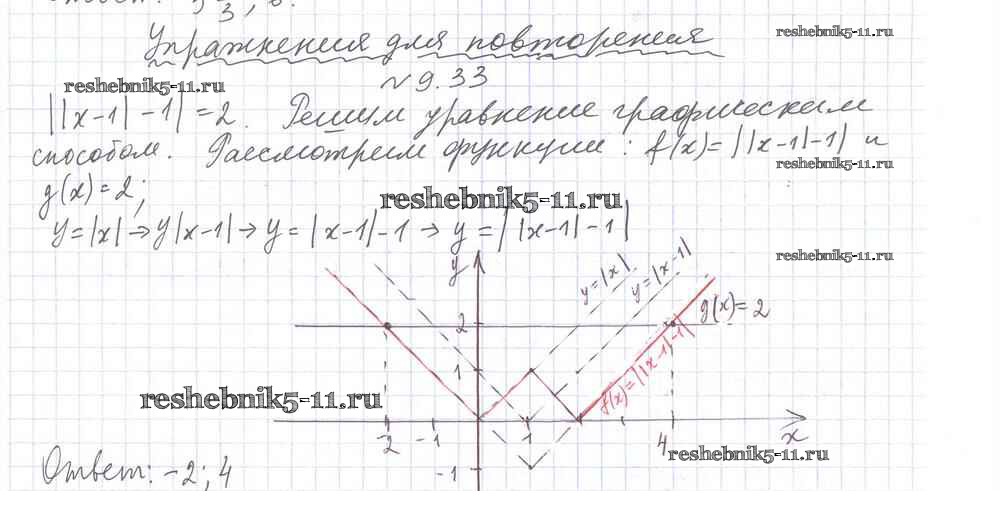 Ответ: 3 1/3; 6.
Упражнения для повторения
reshebnik5-11.ru
reshebnik5-11.ru
№9.33
||x-1|-1|=2. Решим уравнение графическим
способом. Рассмотрим функции: f(x)=||x-1|-1| и
reshebnik5-11.ru
g(x)=2;
reshebnik5-11.ru
y=|x|→y|x-1|→y=|x-1|-1→y=||x-1|-1|
reshebnik5-11.ru
y
y=|x|
y=|x-1|
g(x)=2
2
1
f(x)=||x-1|-1|
reshebnik5-11.ru
-2 -1 1 4 x
reshebnik5-11.ru
-1
Ответ: -2; 4